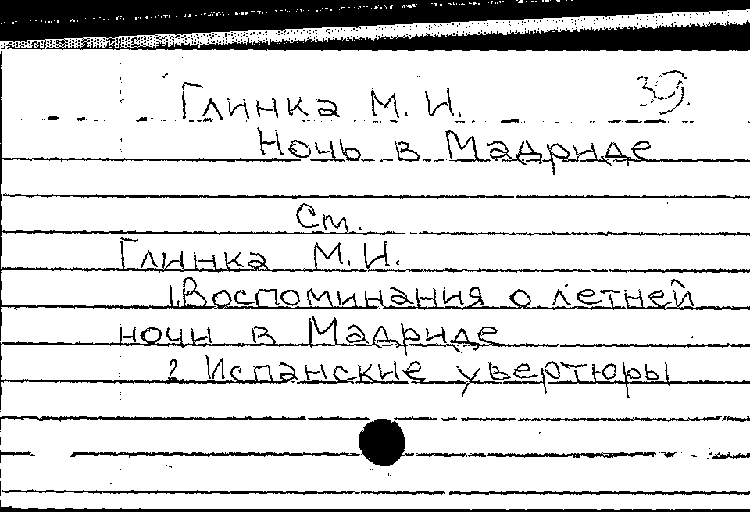 39.
Глинка М. И.
Ночь в Мадриде
См.
Глинка М.И.
1.Воспоминания о летней
ночи в Мадриде
2 Испанские увертюры